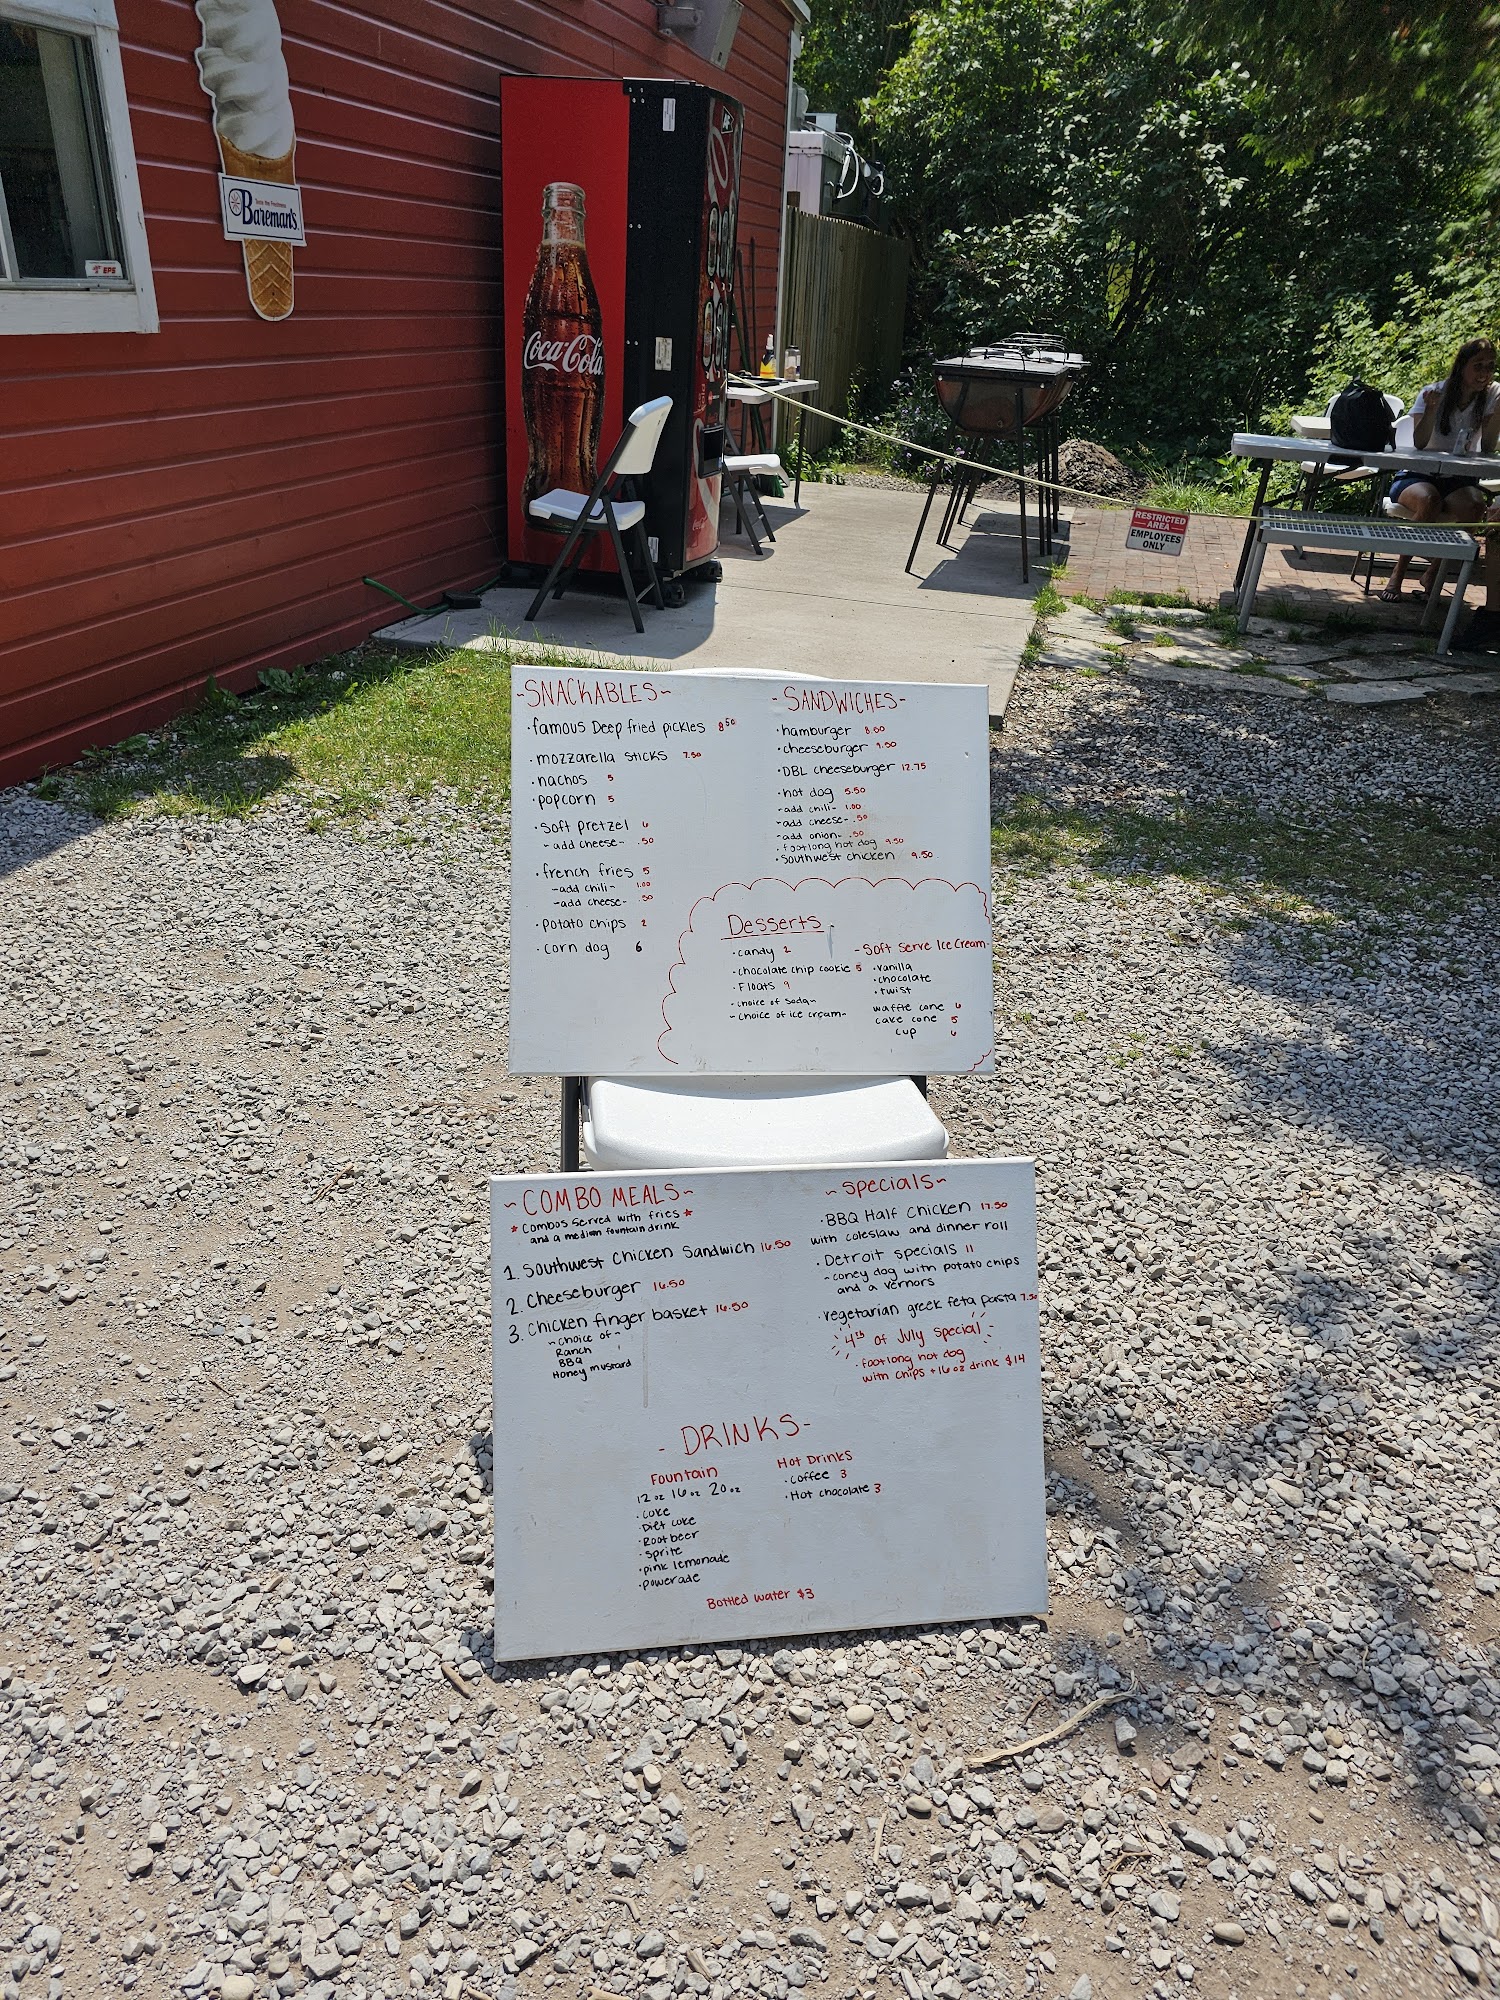 Taste the Freshness
Bareman's
EPS
Coca-Cola
RESTRICTED
AREA
EMPLOYEES
ONLY
~SNACKABLES~
·famous Deep fried pickles 8⁵⁰
·mozzarella sticks 7.50
·nachos 5
·popcorn 5
·soft pretzel 6
-add cheese- .50
·french fries 5
-add chili- 1.00
-add cheese- .50
·potato chips 2
·corn dog 6
-SANDWICHES-
·hamburger 8.00
·cheeseburger 9.50
·DBL cheeseburger 12.75
·hot dog 5.50
-add chili- 1.00
-add cheese- .50
-add onion- .50
·footlong hot dog 9.50
·Southwest chicken 9.50
Desserts
·candy 2
·chocolate chip cookie 5
·Floats 9
-choice of soda-
-choice of ice cream-
-Soft Serve Ice Cream-
·vanilla
·chocolate
·twist
waffle cone 6
cake cone 5
cup 6
~COMBO MEALS~
*Combos served with fries*
and a medium fountain drink
1. Southwest Chicken Sandwich 16.50
2. Cheeseburger 16.50
3. Chicken finger basket 16.50
~choice of~
Ranch
BBQ
Honey mustard
~specials~
·BBQ Half Chicken 17.50
with coleslaw and dinner roll
·Detroit specials 11
-coney dog with potato chips
and a vernors
·vegetarian greek feta pasta 7.50
4th of July special
·footlong hot dog
with chips + 16 oz drink $14
-DRINKS-
Fountain
12 oz 16 oz 20 oz
·coke
·Diet coke
·Rootbeer
·Sprite
·pink lemonade
·powerade
Hot Drinks
·coffee 3
·Hot chocolate 3
Bottled water $3